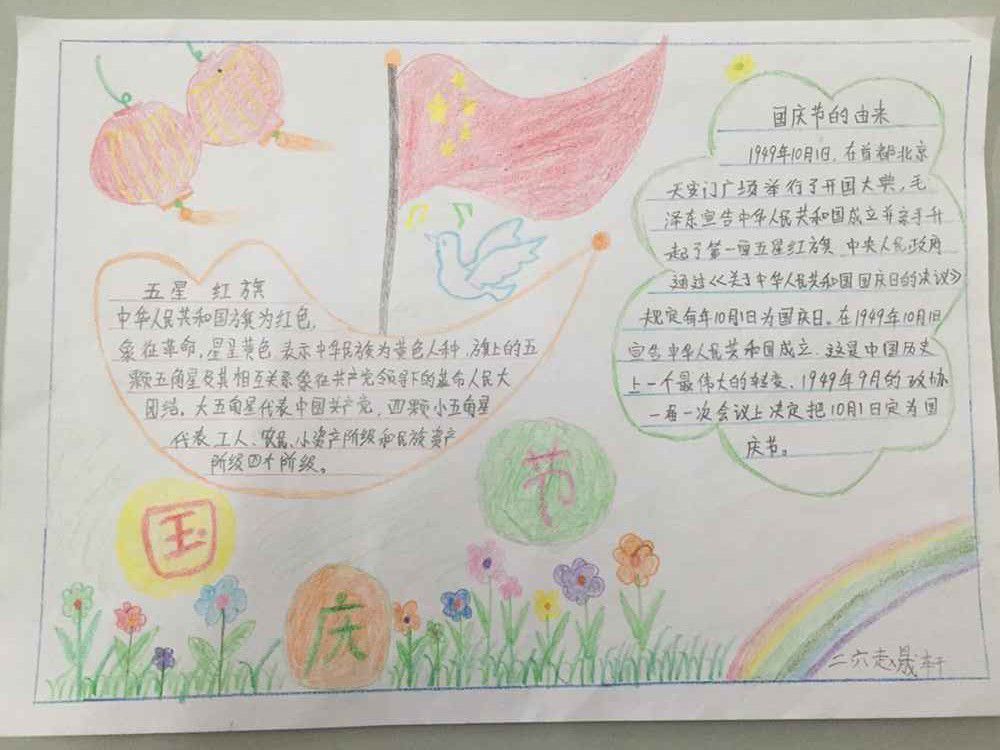 五星 红旗
中华人民共和国旗为红色,
象征革命,星呈黄色,表示中华民族为黄色人种,旗上的五
颗五角星及其相互关系象征共产党领导下的革命人民大
团结。大五角星代表中国共产党,四颗小五角星
代表工人、农民、小资产阶级和民族资产
阶级四个阶级。
国庆节的由来
1949年10月1日,在首都北京
天安门广场举行了开国大典,毛
泽东宣告中华人民共和国成立并亲手升
起了第一面五星红旗,中央人民政府
通过《关于中华人民共和国国庆日的决议》
规定每年10月1日为国庆日。在1949年10月1日
宣告中华人民共和国成立,这是中国历史
上一个最伟大的转变、1949年9月的政协
一届一次会议上决定把10月1日定为国
庆节。
国
庆
节
二六 晟轩